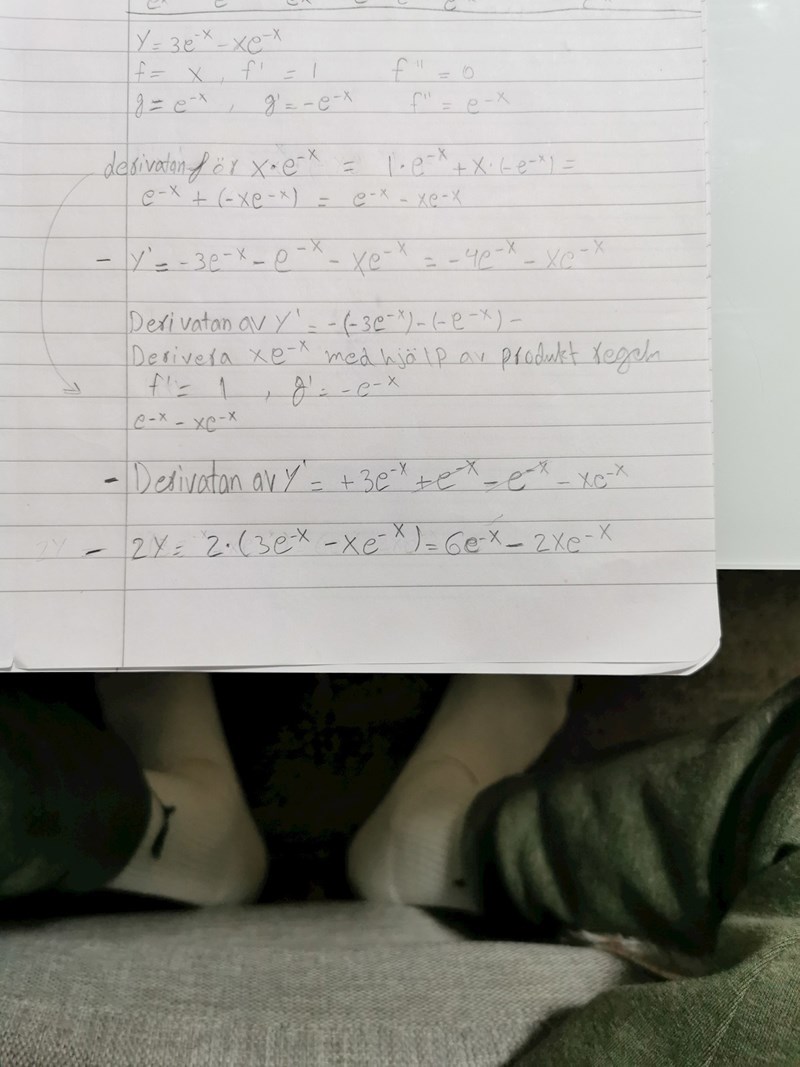 Y = 3e^-x - xe^-x
f = x , f' = 1 f" = 0
g = e^-x , g' = -e^-x f" = e^-x
derivatan för x·e^-x = 1·e^-x + x·(-e^-x) =
e^-x + (-xe^-x) = e^-x - xe^-x
- Y' = -3e^-x - e^-x - xe^-x = -4e^-x - xe^-x
Derivatan av Y' = -(-3e^-x) - (-e^-x) -
Derivera xe^-x med hjälp av produkt regeln
f' = 1 , g' = -e^-x
e^-x - xe^-x
- Derivatan av Y' = +3e^-x + e^-x - e^-x - xe^-x
2Y - 2Y = 2·(3e^-x - xe^-x) = 6e^-x - 2xe^-x